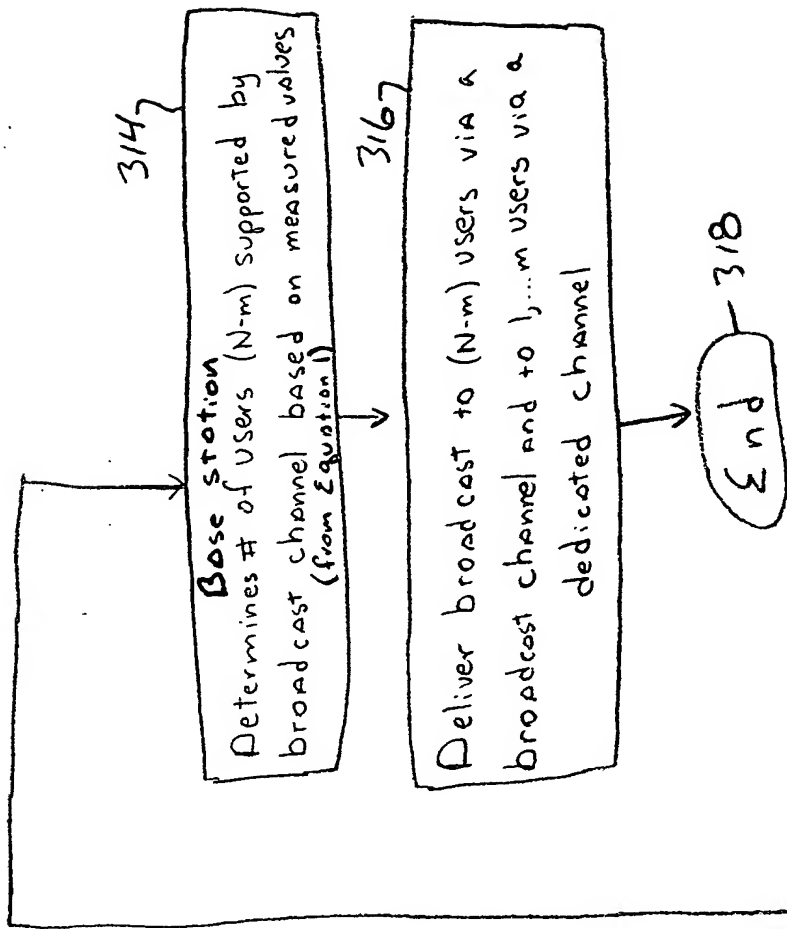 314
Base station
Determines # of users (N-m) supported by
broadcast channel based on measured values
(from Equation 1)
316
Deliver broadcast to (N-m) users via a
broadcast channel and to 1,...m users via a
dedicated channel
End
318